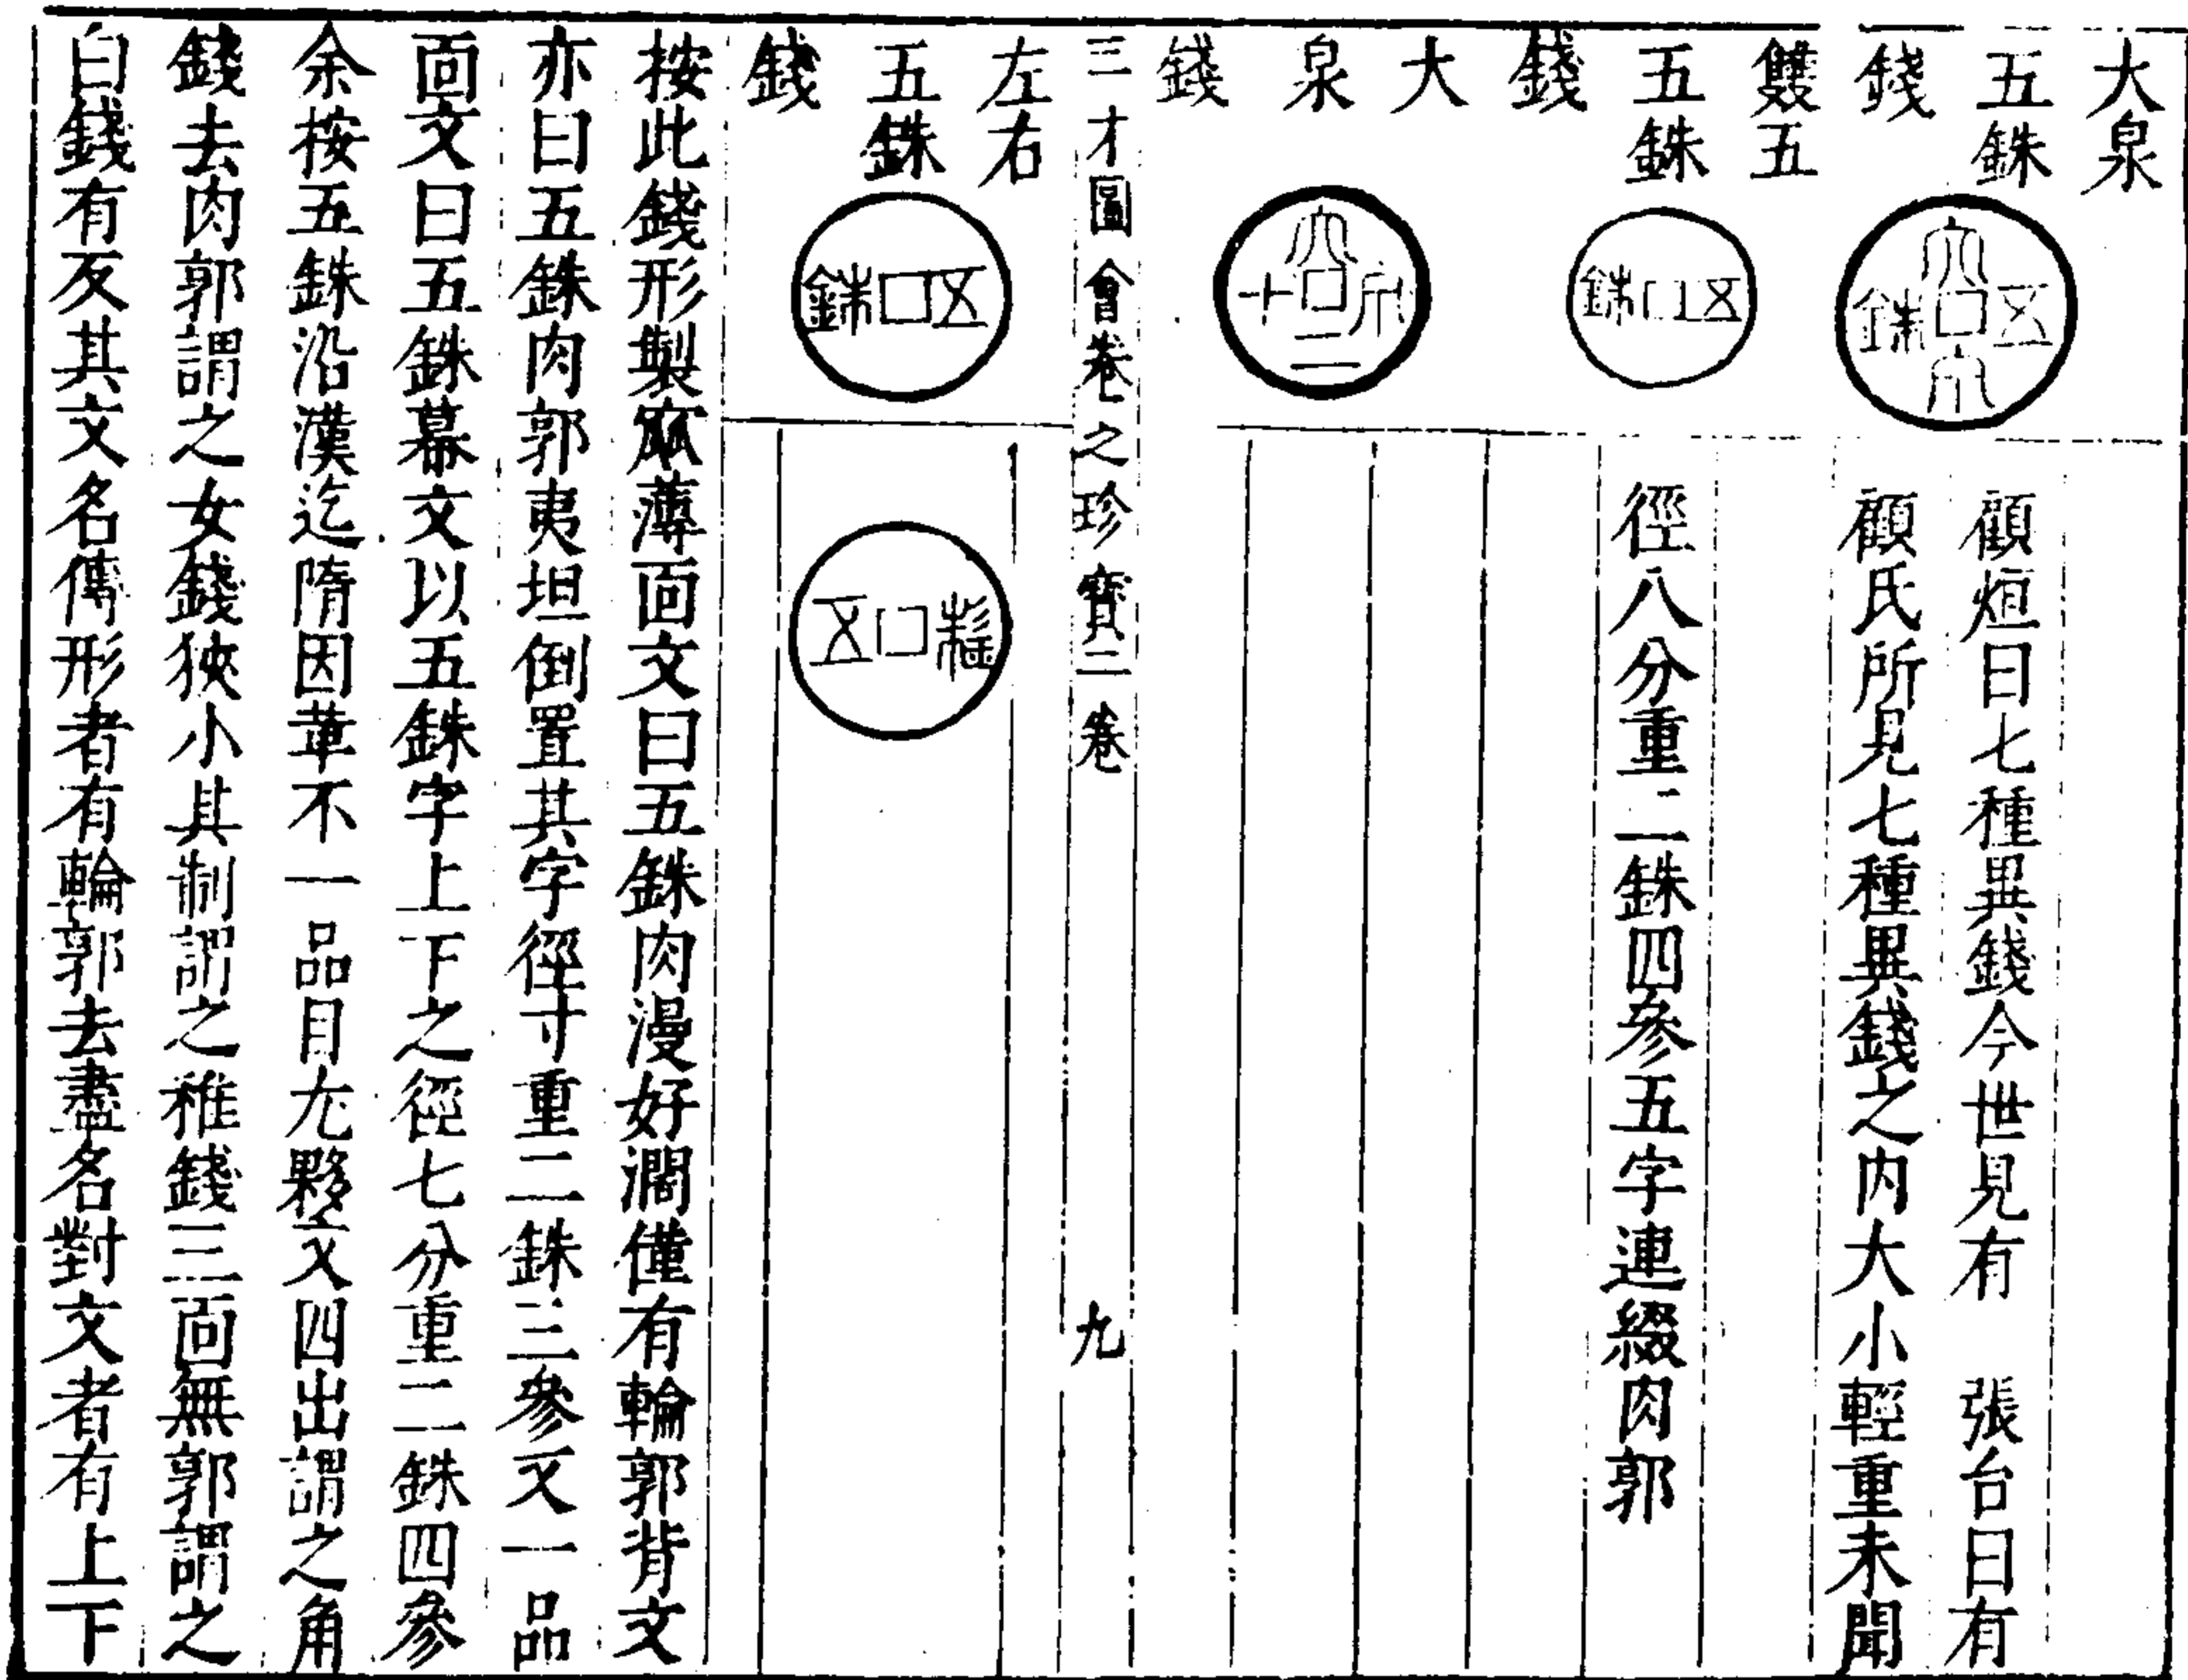 大泉
五銖
錢
顧烜曰七種異錢今世見有　張台曰有
顧氏所見七種異錢之内大小輕重未聞
雙五
五銖
錢
徑八分重二銖四參五字連綴肉郭
大
泉
錢
三才圖會卷之珍寶二卷　九
左右
五銖
錢
按此錢形製寙薄面文曰五銖肉漫好濶僅有輪郭背文
亦曰五銖肉郭夷坦倒置其字徑寸重二銖三參又一品
面文曰五銖幕文以五銖字上下之徑七分重二銖四參
余按五銖沿漢迄隋因革不一品目尤夥文四出謂之角
錢去肉郭謂之女錢狹小其制謂之稚錢三面無郭謂之
白錢有反其文名傳形者有輪郭去盡名對文者有上下